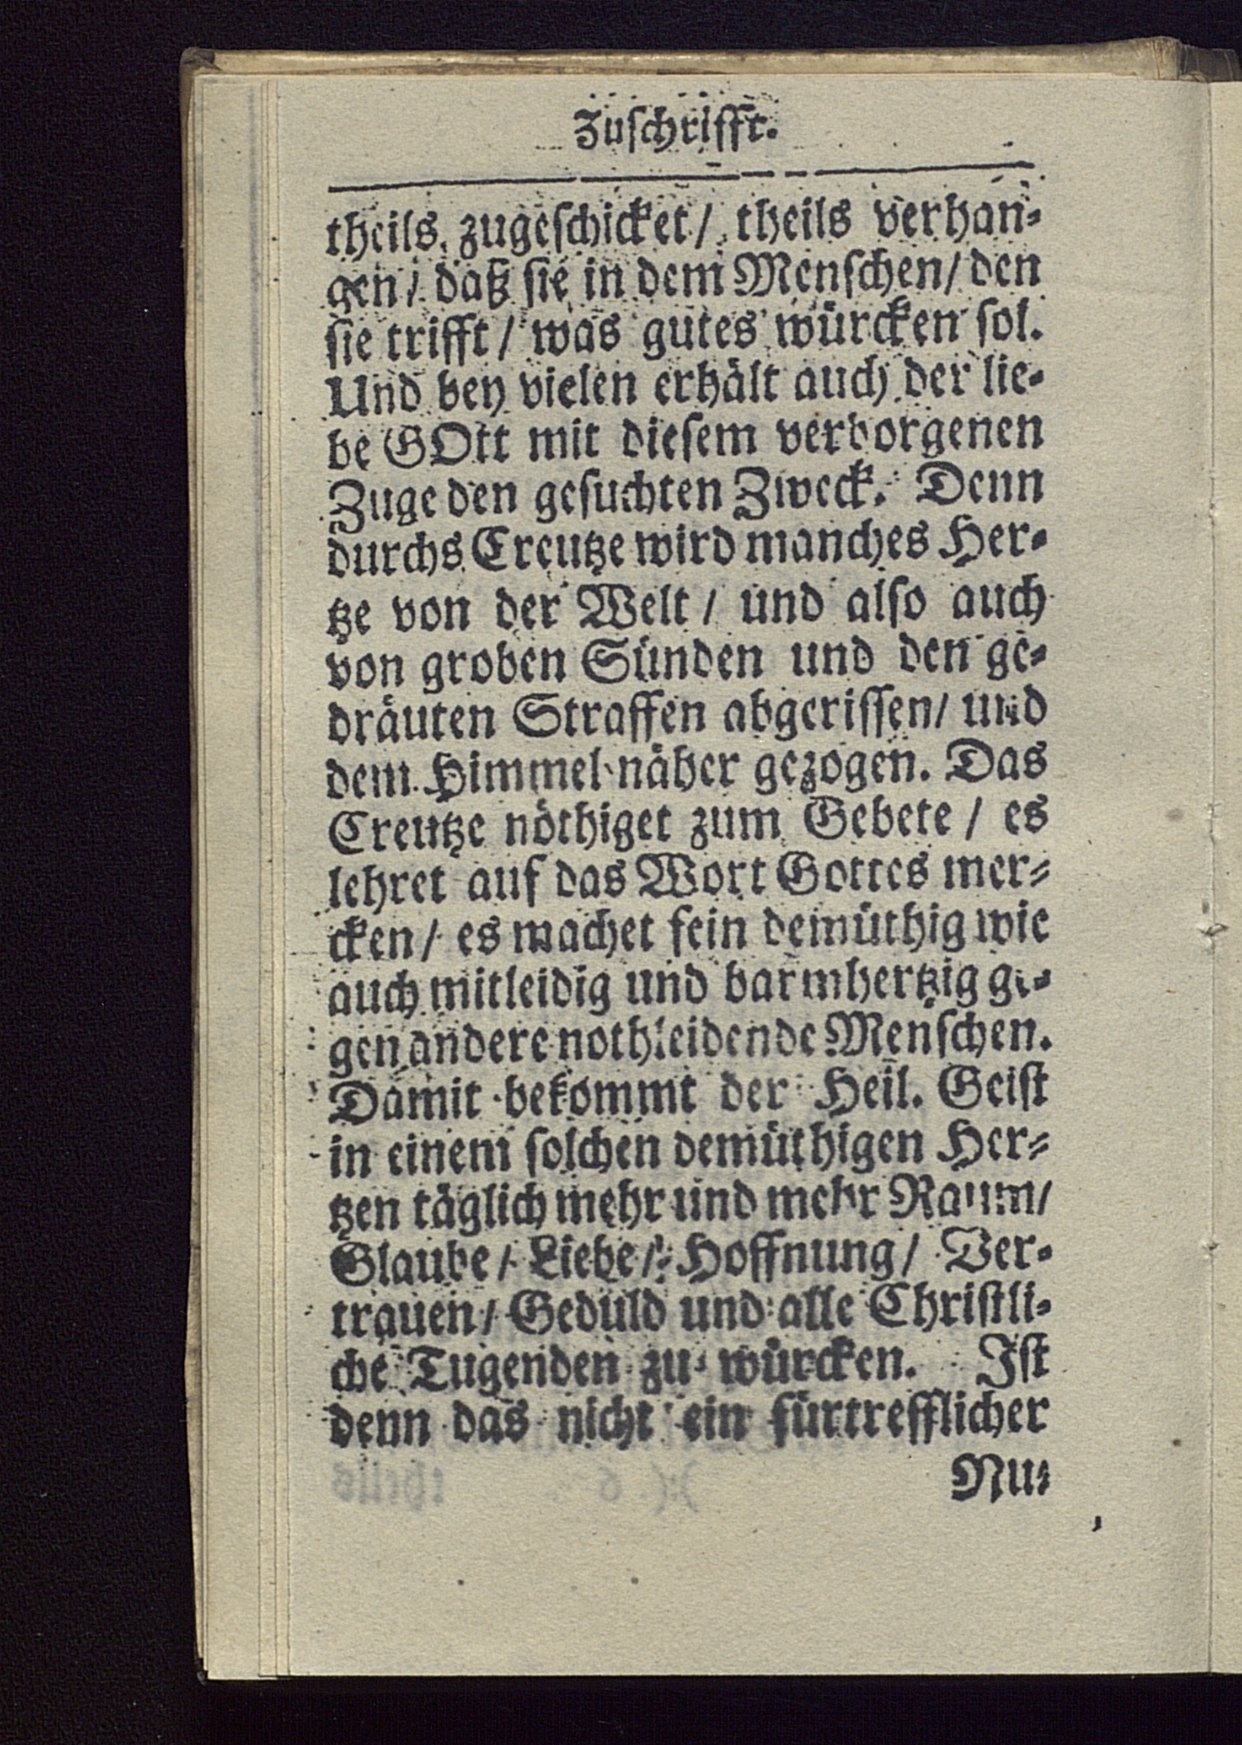 Zuſchrifft.
theils zugeſchicket/ theils verhan-
gen/ daß ſie in dem Menſchen/ den
ſie trifft/ was gutes würcken ſol.
Und bey vielen erhält auch der lie-
be GOtt mit dieſem verborgenen
Zuge den geſuchten Zweck. Denn
durchs Creutze wird manches Her-
tze von der Welt/ und alſo auch
von groben Sünden und den ge-
dräuten Straffen abgeriſſen/ und
dem Himmel näher gezogen. Das
Creutze nöthiget zum Gebete/ es
lehret auf das Wort Gottes mer-
cken/ es machet fein demüthig wie
auch mitleidig und barmhertzig ge-
gen andere nothleidende Menſchen.
Damit bekommt der Heil. Geiſt
in einem ſolchen demüthigen Her-
tzen täglich mehr und mehr Raum/
Glaube/ Liebe/ Hoffnung/ Ver-
trauen/ Gedult und alle Chriſtli-
che Tugenden zu würcken. Iſt
denn das nicht ein fürtrefflicher
Nu-